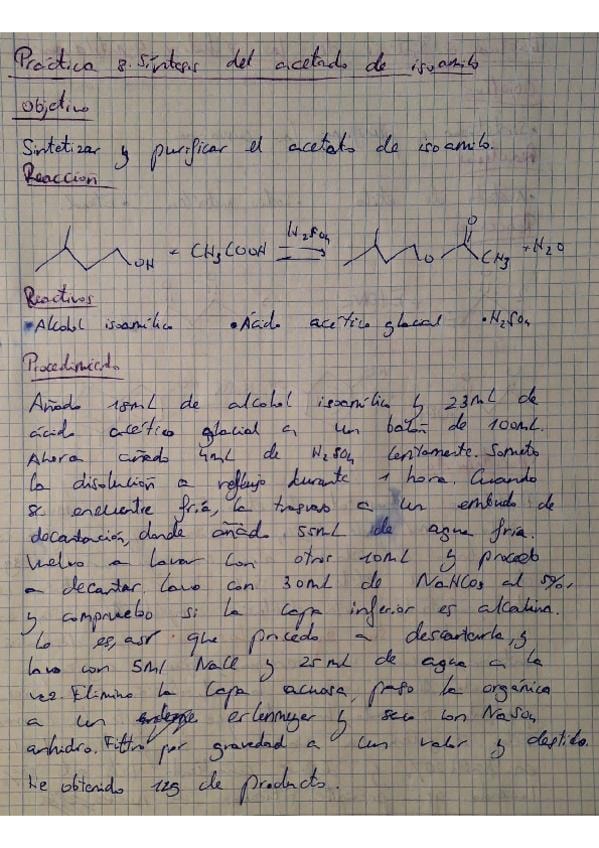 Práctica 8. Síntesis del acetado de isoamilo
Objetivo
Sintetizar y purificar el acetato de isoamilo.
Reacción
OH + CH3COOH H2SO4 O O CH3 + H2O
Reactivos
• Alcohol isoamílico • Ácido acético glacial • H2SO4
Procedimiento
Añado 18mL de alcohol isoamílico y 23mL de
ácido acético glacial a un balón de 100mL.
Ahora añado 4mL de H2SO4 lentamente. Someto
la disolución a reflujo durante 1 hora. Cuando
se encuentre fría, la trasvaso a un embudo de
decantación, donde añado 55mL de agua fría.
Vuelvo a lavar con otros 10mL y procedo
a decantar. Lavo con 30mL de NaHCO3 al 5%,
y compruebo si la capa inferior es alcalina.
Lo es, así que procedo a descartarla, y
lavo con 5ml NaCl y 25mL de agua a la
vez. Elimino la capa acuosa, paso la orgánica
a un erlenmeyer y seco con NaSO4
anhidro. Filtro por gravedad a un y destilo.
He obtenido 12g de producto.